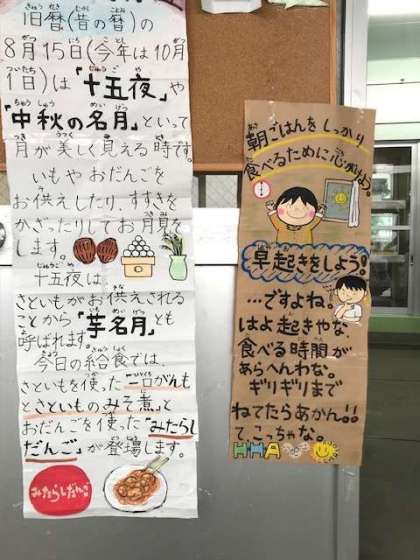 旧暦(昔の暦)の
8月15日(今年は10月
1日)は「十五夜」や
「中秋の名月」といって
月が美しく見える時です。
いもやおだんごを
お供えしたり、すすきを
かざったりしてお月見を
します。
十五夜は
さといもがお供えされる
ことから「芋名月」とも
呼ばれます。
今日の給食では、
さといもを使った一口がんも
とさといものみそ煮」と
おだんごを使った"みたらし
だんご"が登場します。
みたらしだんご
朝ごはんをしっかり
食べるために心がけよう。
早起きをしよう!
…ですよね。
はよ起きやな、
食べる時間が
あらへんわな。
ギリギリまで
ねてたらあかん!!
てこっちゃな。